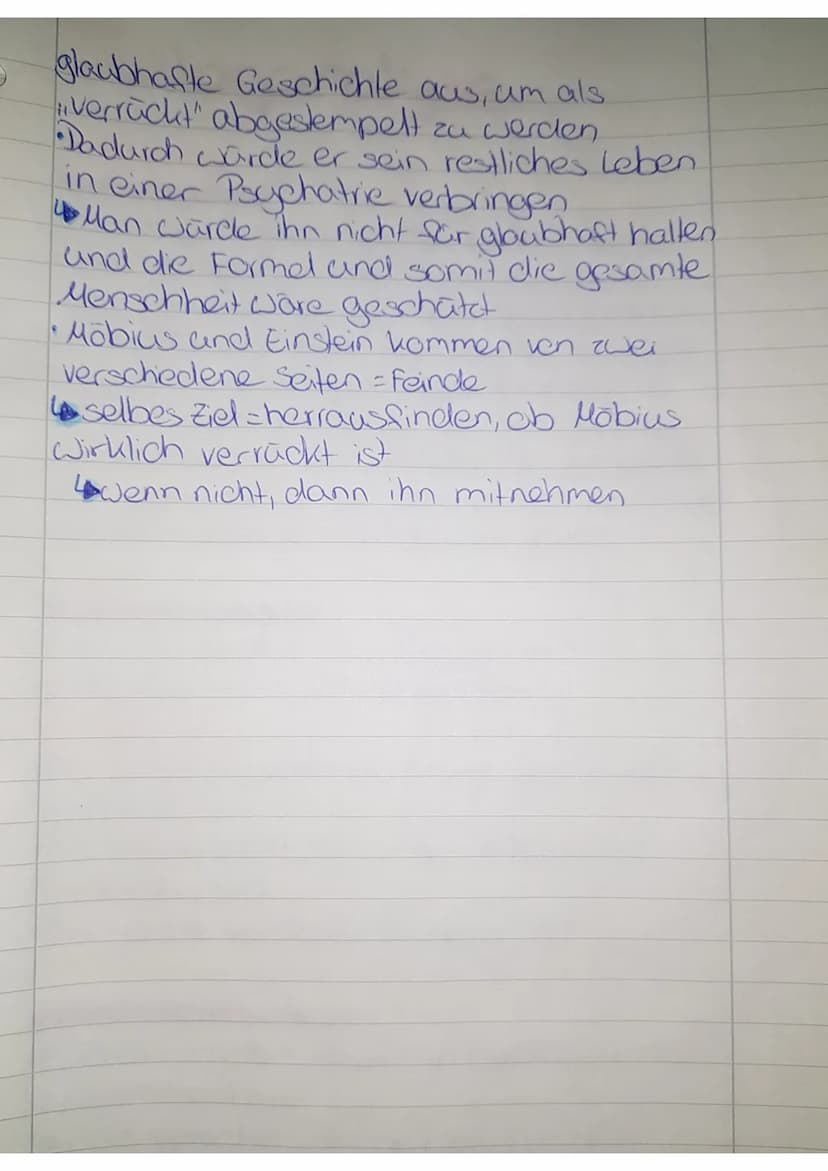 glaubhafte Geschichte aus, um als
„verrückt" abgestempelt zu werden
• Dadurch würde er sein restliches Leben
in einer Psychatrie verbringen
↳ Man würde ihn nicht für glaubhaft halten
und die Formel und somit die gesamte
Menschheit wäre geschützt
• Möbius und Einstein kommen von zwei
verschiedene Seiten = Feinde
↳ selbes Ziel = herrausfinden, ob Möbius
wirklich verrückt ist
↳ wenn nicht, dann ihn mitnehmen